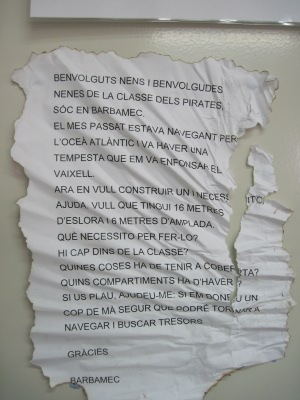 BENVOLGUTS NENS I BENVOLGUDES
NENES DE LA CLASSE DELS PIRATES,
SÓC EN BARBAMEC.
EL MES PASSAT ESTAVA NAVEGANT PER
L'OCEÀ ATLÀNTIC I VA HAVER UNA
TEMPESTA QUE EM VA ENFONSAR EL
VAIXELL.
ARA EN VULL CONSTRUIR UN I NECESSITO
AJUDA. VULL QUE TINGUI 16 METRES
D'ESLORA I 6 METRES D'AMPLADA.
QUÈ NECESSITO PER FER-LO?
HI CAP DINS DE LA CLASSE?
QUINES COSES HA DE TENIR A COBERTA?
QUINS COMPARTIMENTS HA D'HAVER?
SI US PLAU, AJUDEU-ME: SI EM DONEU UN
COP DE MÀ SEGUR QUE PODRÉ TORNAR A
NAVEGAR I BUSCAR TRESORS
GRÀCIES
BARBAMEC